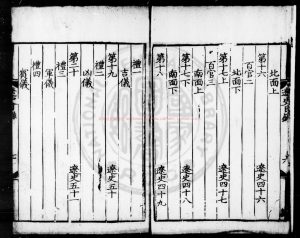 北面上
第十六 遼史四十六
百官二
北面下
第十七上 遼史四十七
百官三
南面上
第十七下 遼史四十八
南面下
第十八 遼史四十九
禮一
吉儀
第十九 遼史五十
禮二
凶儀
第二十 遼史五十一
禮三
軍儀
禮四
賓儀